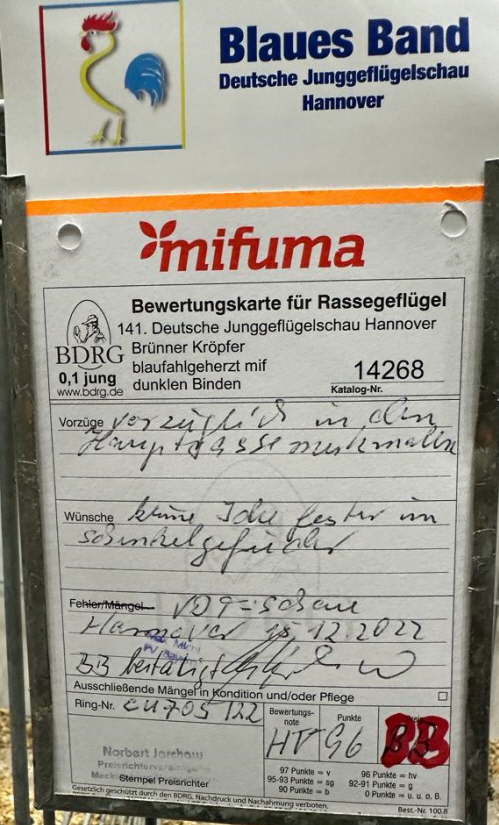 Blaues Band
Deutsche Junggeflügelschau
Hannover
mifuma
Bewertungskarte für Rassegeflügel
141. Deutsche Junggeflügelschau Hannover
BDRG
Brünner Kröpfer
0,1 jung
blaufahlgeherzt mif
14268
www.bdrg.de
dunklen Binden
Katalog-Nr.
Vorzüge vorzüglich in den
Hauptrassemerkmalen
Wünsche keine Idee fester im
Schenkelgefieder
Fehler/Mängel VDT=Schau
Hannover 12.2022
BB bestätigt
Ausschließende Mängel in Kondition und/oder Pflege
Ring-Nr.
Bewertungs-
note
Punkte
HV 96 BB
Norbert Jorchow
Preisrichtervereinigung
Stempel Preisrichter
97 Punkte = v 96 Punkte = hv
95-93 Punkte = sg 92-91 Punkte = g
90 Punkte = b 0 Punkte = u. u. o. B.
Gesetzlich geschützt durch den BDRG. Nachdruck und Nachahmung verboten.
Best.-Nr. 100.8